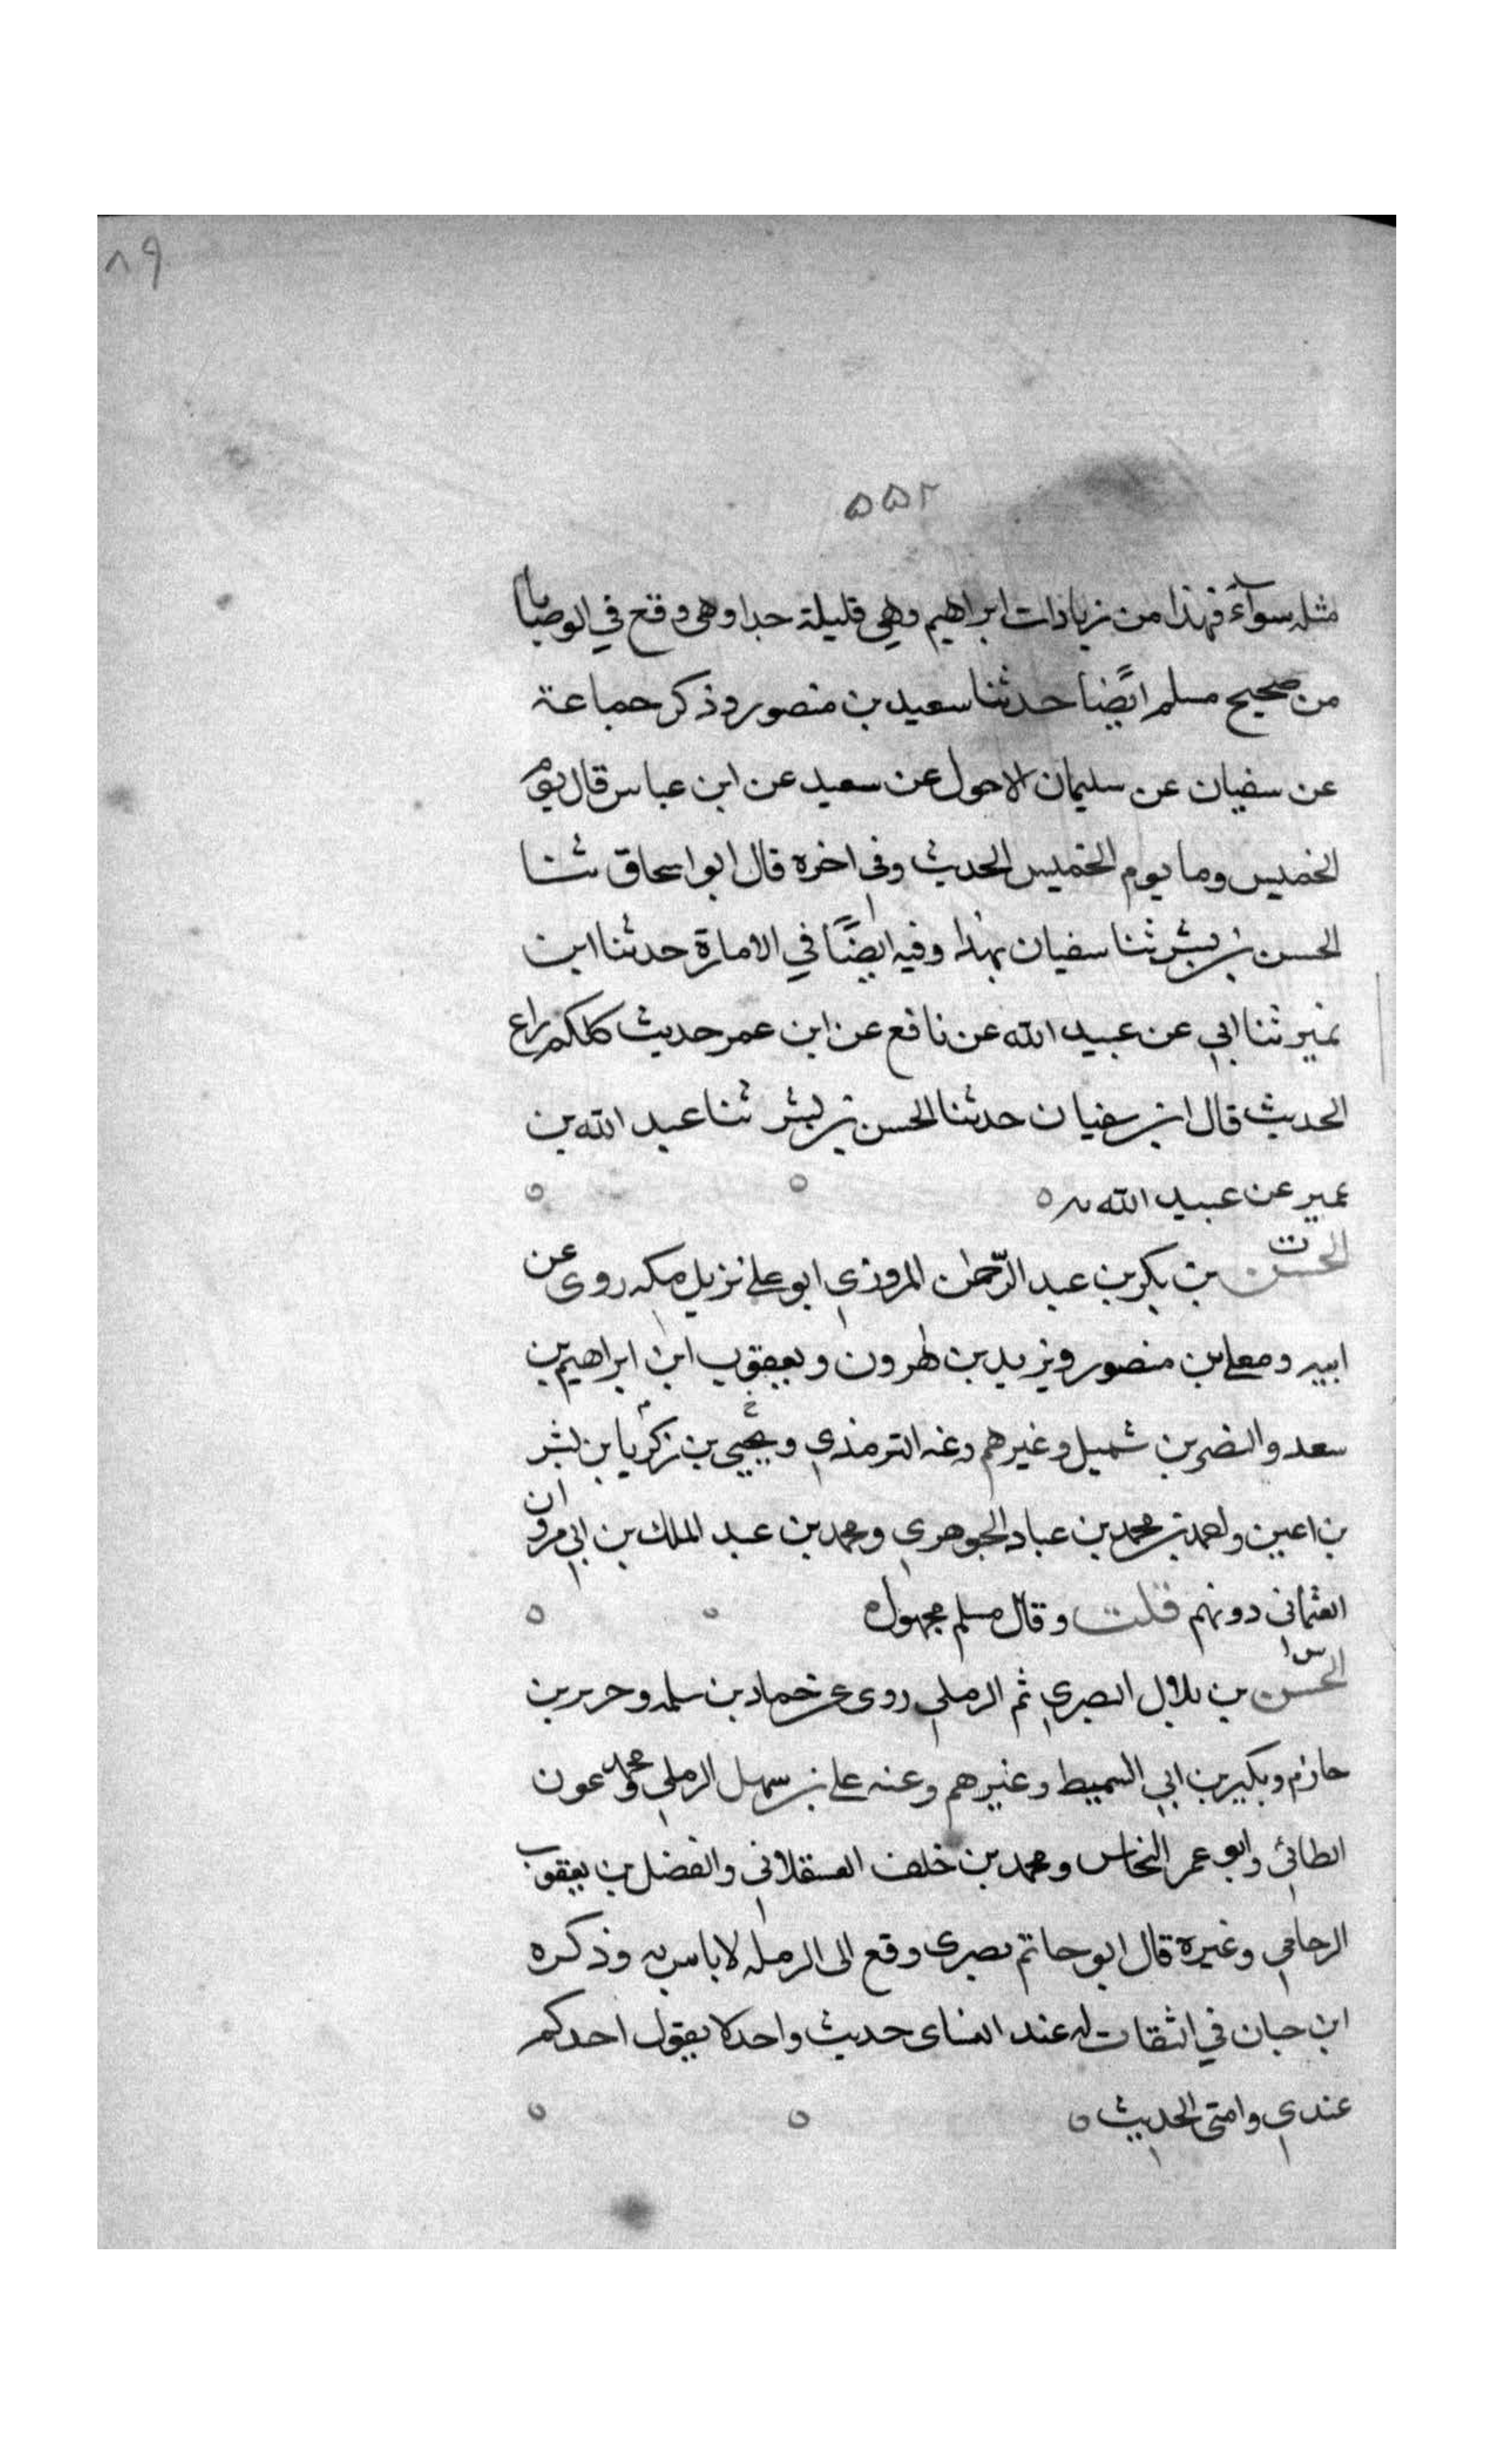 ٨٩
٥٥٢
مثله سوآء فهذا من زيادات ابراهيم وهي قليلة جدا وهى وقع في الوصايا
من صحيح مسلم ايضا حدثنا سعيد بن منصور وذكر جماعة
عن سفيان عن سليمان الاحول عن سعيد عن ابن عباس قال يوم
الخميس وما يوم الخميس الحديث وفى اخره قال ابو اسحاق ثنا
الحسن بن بشر ثنا سفيان بهذا وفيه ايضًا في الامارة حدثنا ابن
نمير ثنا ابي عن عبيد الله عن نافع عن ابن عمر حديث كلكم راع
الحديث قال ابن سفيان حدثنا الحسن بن بشر ثنا عبد الله بن
نمير عن عبيد الله به
ت
الحسن بن بكر بن عبد الرحمن المروزي ابو علي نزيل مكه روى عن
ابيه ومعلى بن منصور ويزيد بن هرون ويعقوب ابن ابراهيم بن
سعد والنضر بن شميل وغيرهم وعنه الترمذي ويحيى بن زكريا بن بشر
بن اعين واحمد بن محمد بن عباد الجوهري ومحمد بن عبد الملك بن ابي مروان
العثمانى دونهم قلت وقال مسلم مجهول
س
الحسن بن بلال البصري ثم الرملي روى عن حماد بن سلمه وجرير بن
حازم وبكير بن ابي السميط وغيرهم وعنه علي بن سهل الرملي ومحمد عون
الطائي وابو عمر النحاس ومحمد بن خلف العسقلانى والفضل بن يعقوب
الرخامي وغيره قال ابو حاتم بصرى وقع الى الرمله لا باس به وذكره
ابن حبان في الثقات له عند النساى حديث واحد لا يقول احدكم
عندي وامتى الحديث